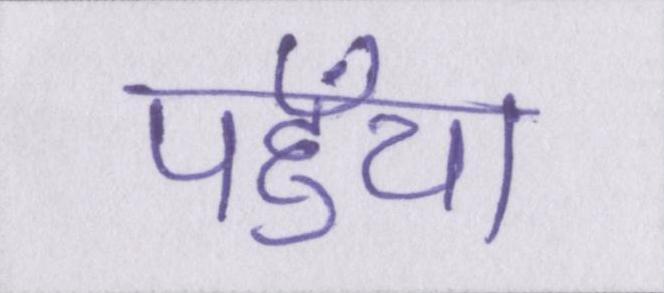 पहुँचा